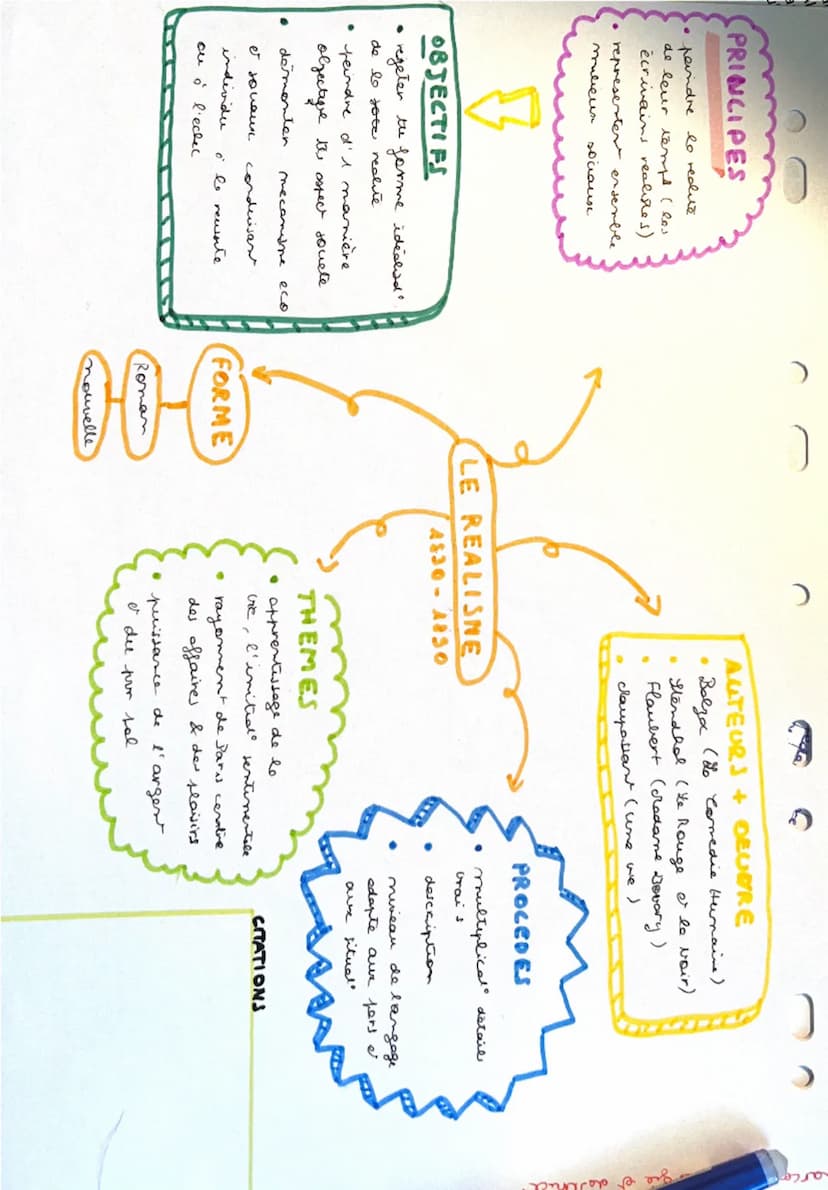 PRINCIPES
• peindre la realité
de leur temps (les
écrivains realistes)
• representent ensemble
milieux sociaux
OBJECTIFS
• rejeter tte forme idéalisat°
de la realité
• peindre d'1 manière
objective tts aspect societe
• démonter mecanisme eco
et sociaux conduisant
individu à la reussite
ou à l'echec
LE REALISME
1830 - 1890
FORME
Roman
nouvelle
AUTEURS + OEUVRE
• Balzac (La Comedie Humaine)
• Stendhal (Le Rouge et le Noir)
• Flaubert (Madame Bovary)
• Maupassant (Une vie)
THEMES
• apprentissage de la
vie, l'initiat° sentimentale
• rayonnement de Paris centre
des affaires & des plaisirs
• puissance de l'argent
et du
PROCEDES
• multiplicat° détails
vrais
• description
• niveau de langage
adapte aux pers et
aux situat°
CITATIONS